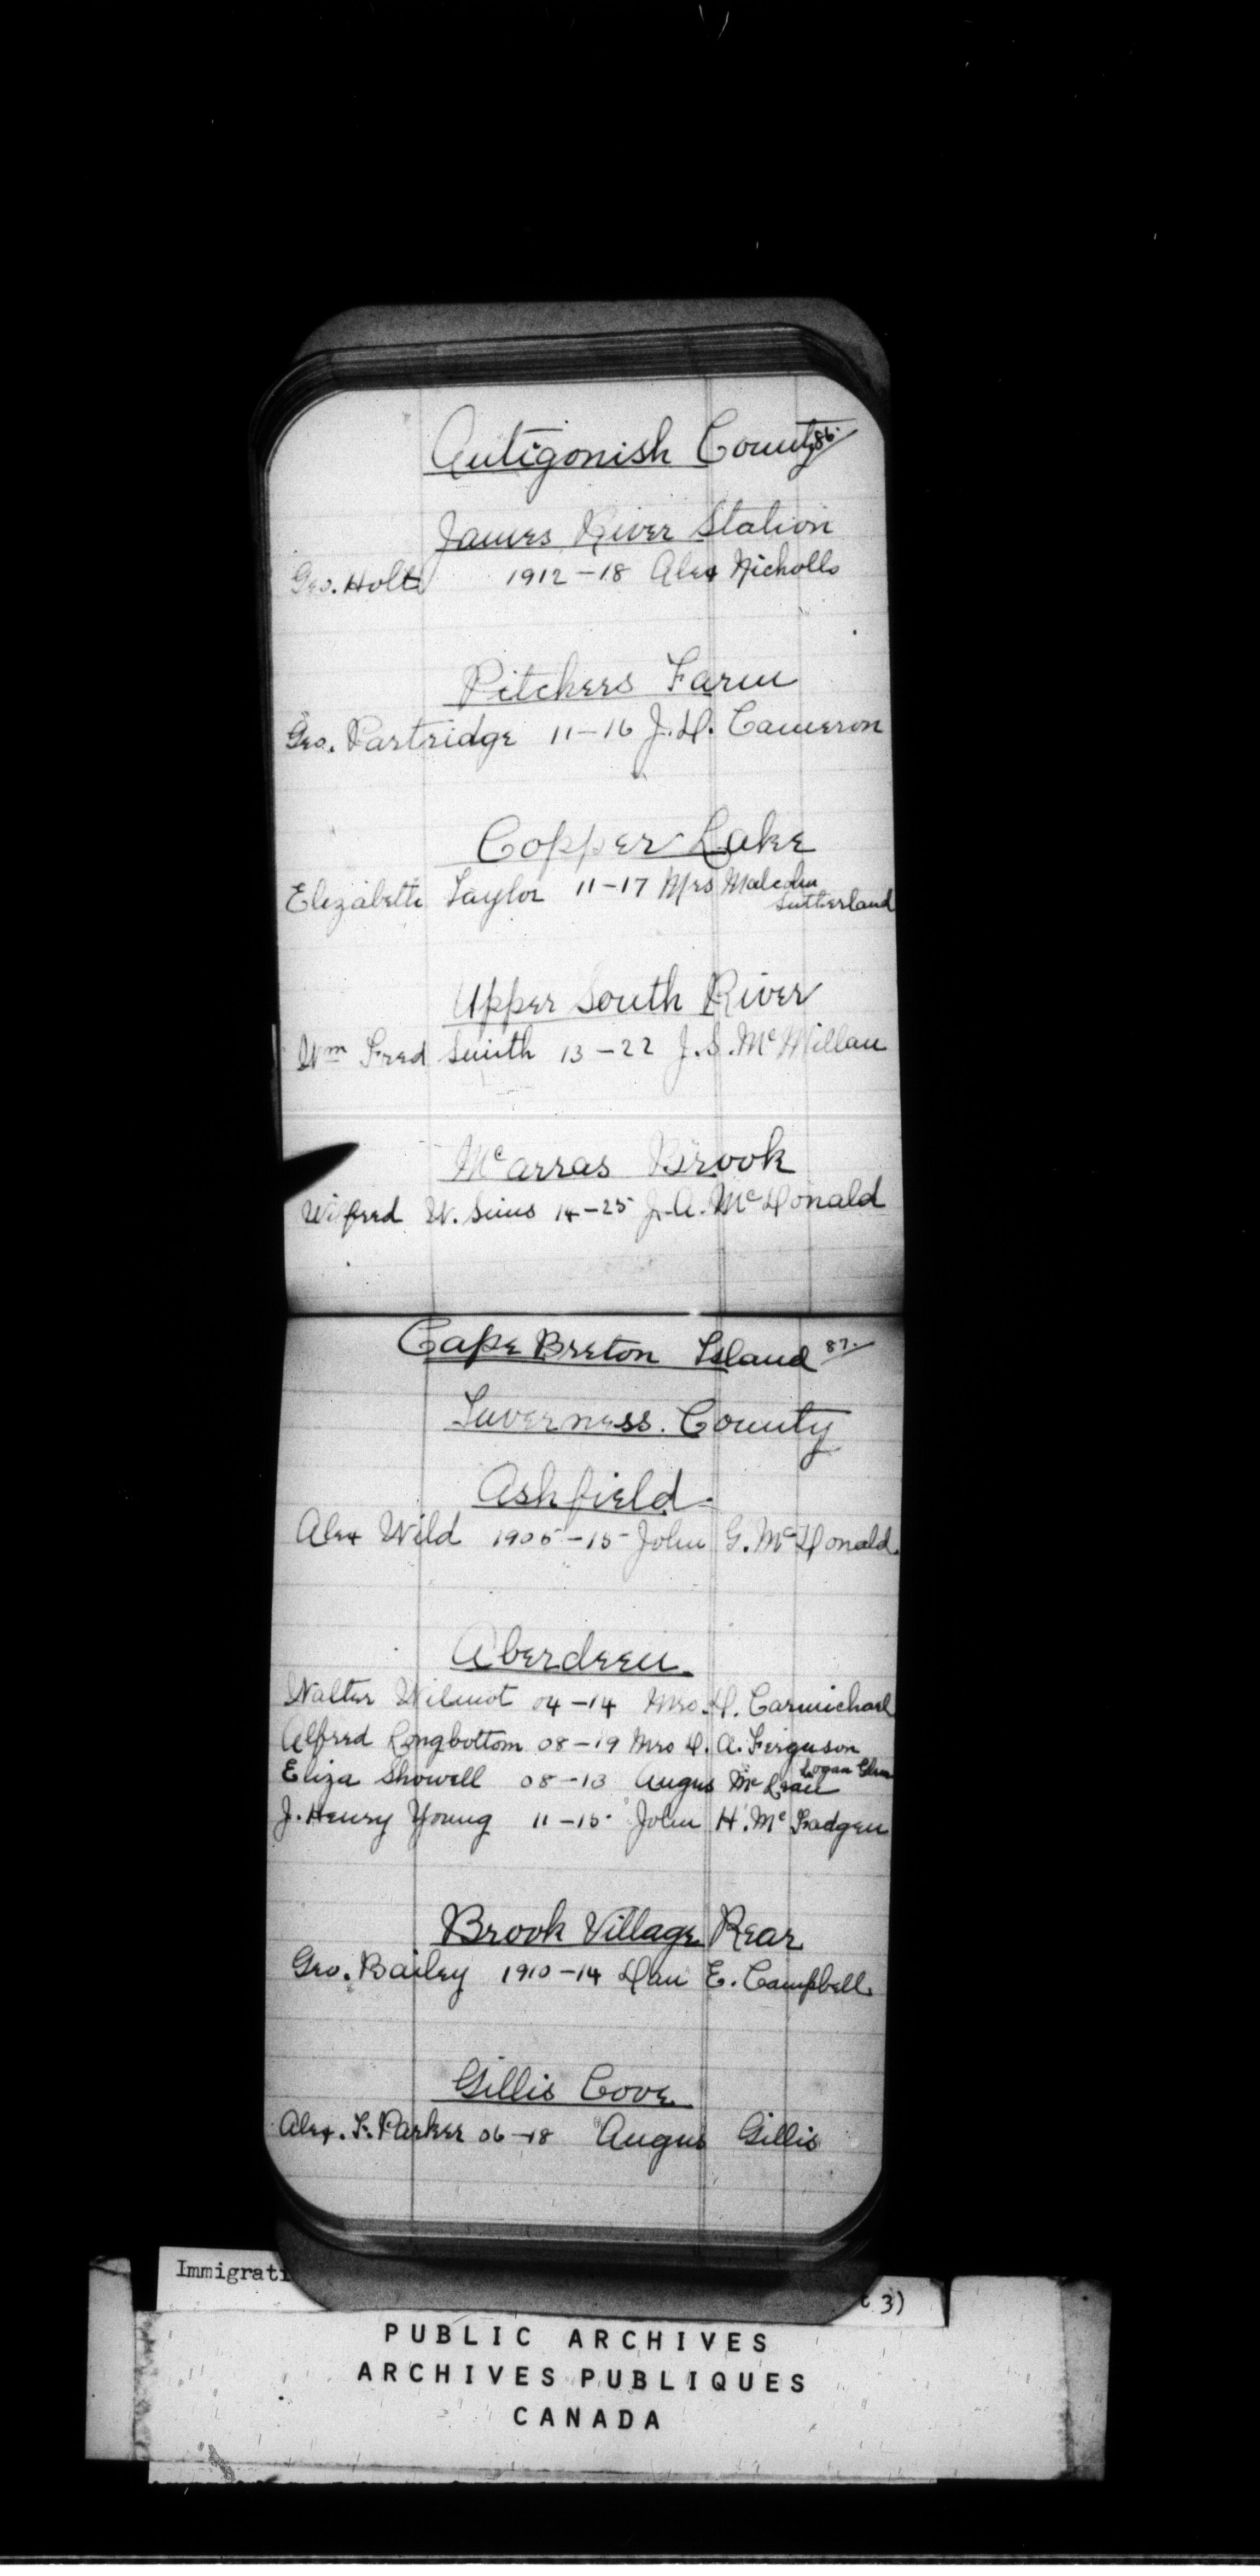 Antigonish County 86.
James River Station
Geo. Holt 1912-18 Alex Nicholls
Pitchers Farm
Geo. Partridge 11-16 J.D. Cameron
Copper Lake
Elizabeth Taylor 11-17 Mrs Malcolm
Sutherland
Upper South River
Wm Fred Smith 13-22 J.S. McMillan
Mcarras Brook
Wilfred W. Sims 14-25 J.A. McDonald
Cape Breton Island 87.
Inverness. County
Ashfield.
Alex Wild 1905-15 John G. McDonald.
Aberdeen.
Walter Wilmot 04-14 Mrs. D. Carmichael
Alfred Longbottom 08-19 Mrs D. A. Ferguson
Logan Glen
Eliza Showell 08-13 Angus McLean
J. Henry Young 11-15 John H. McFadgen
Brook Village Rear
Geo. Bailey 1910-14 Dan E. Campbell.
Gillis Cove.
Alex. F. Parker 06-18 Angus Gillis
Immigrati
3)
PUBLIC ARCHIVES
ARCHIVES PUBLIQUES
CANADA